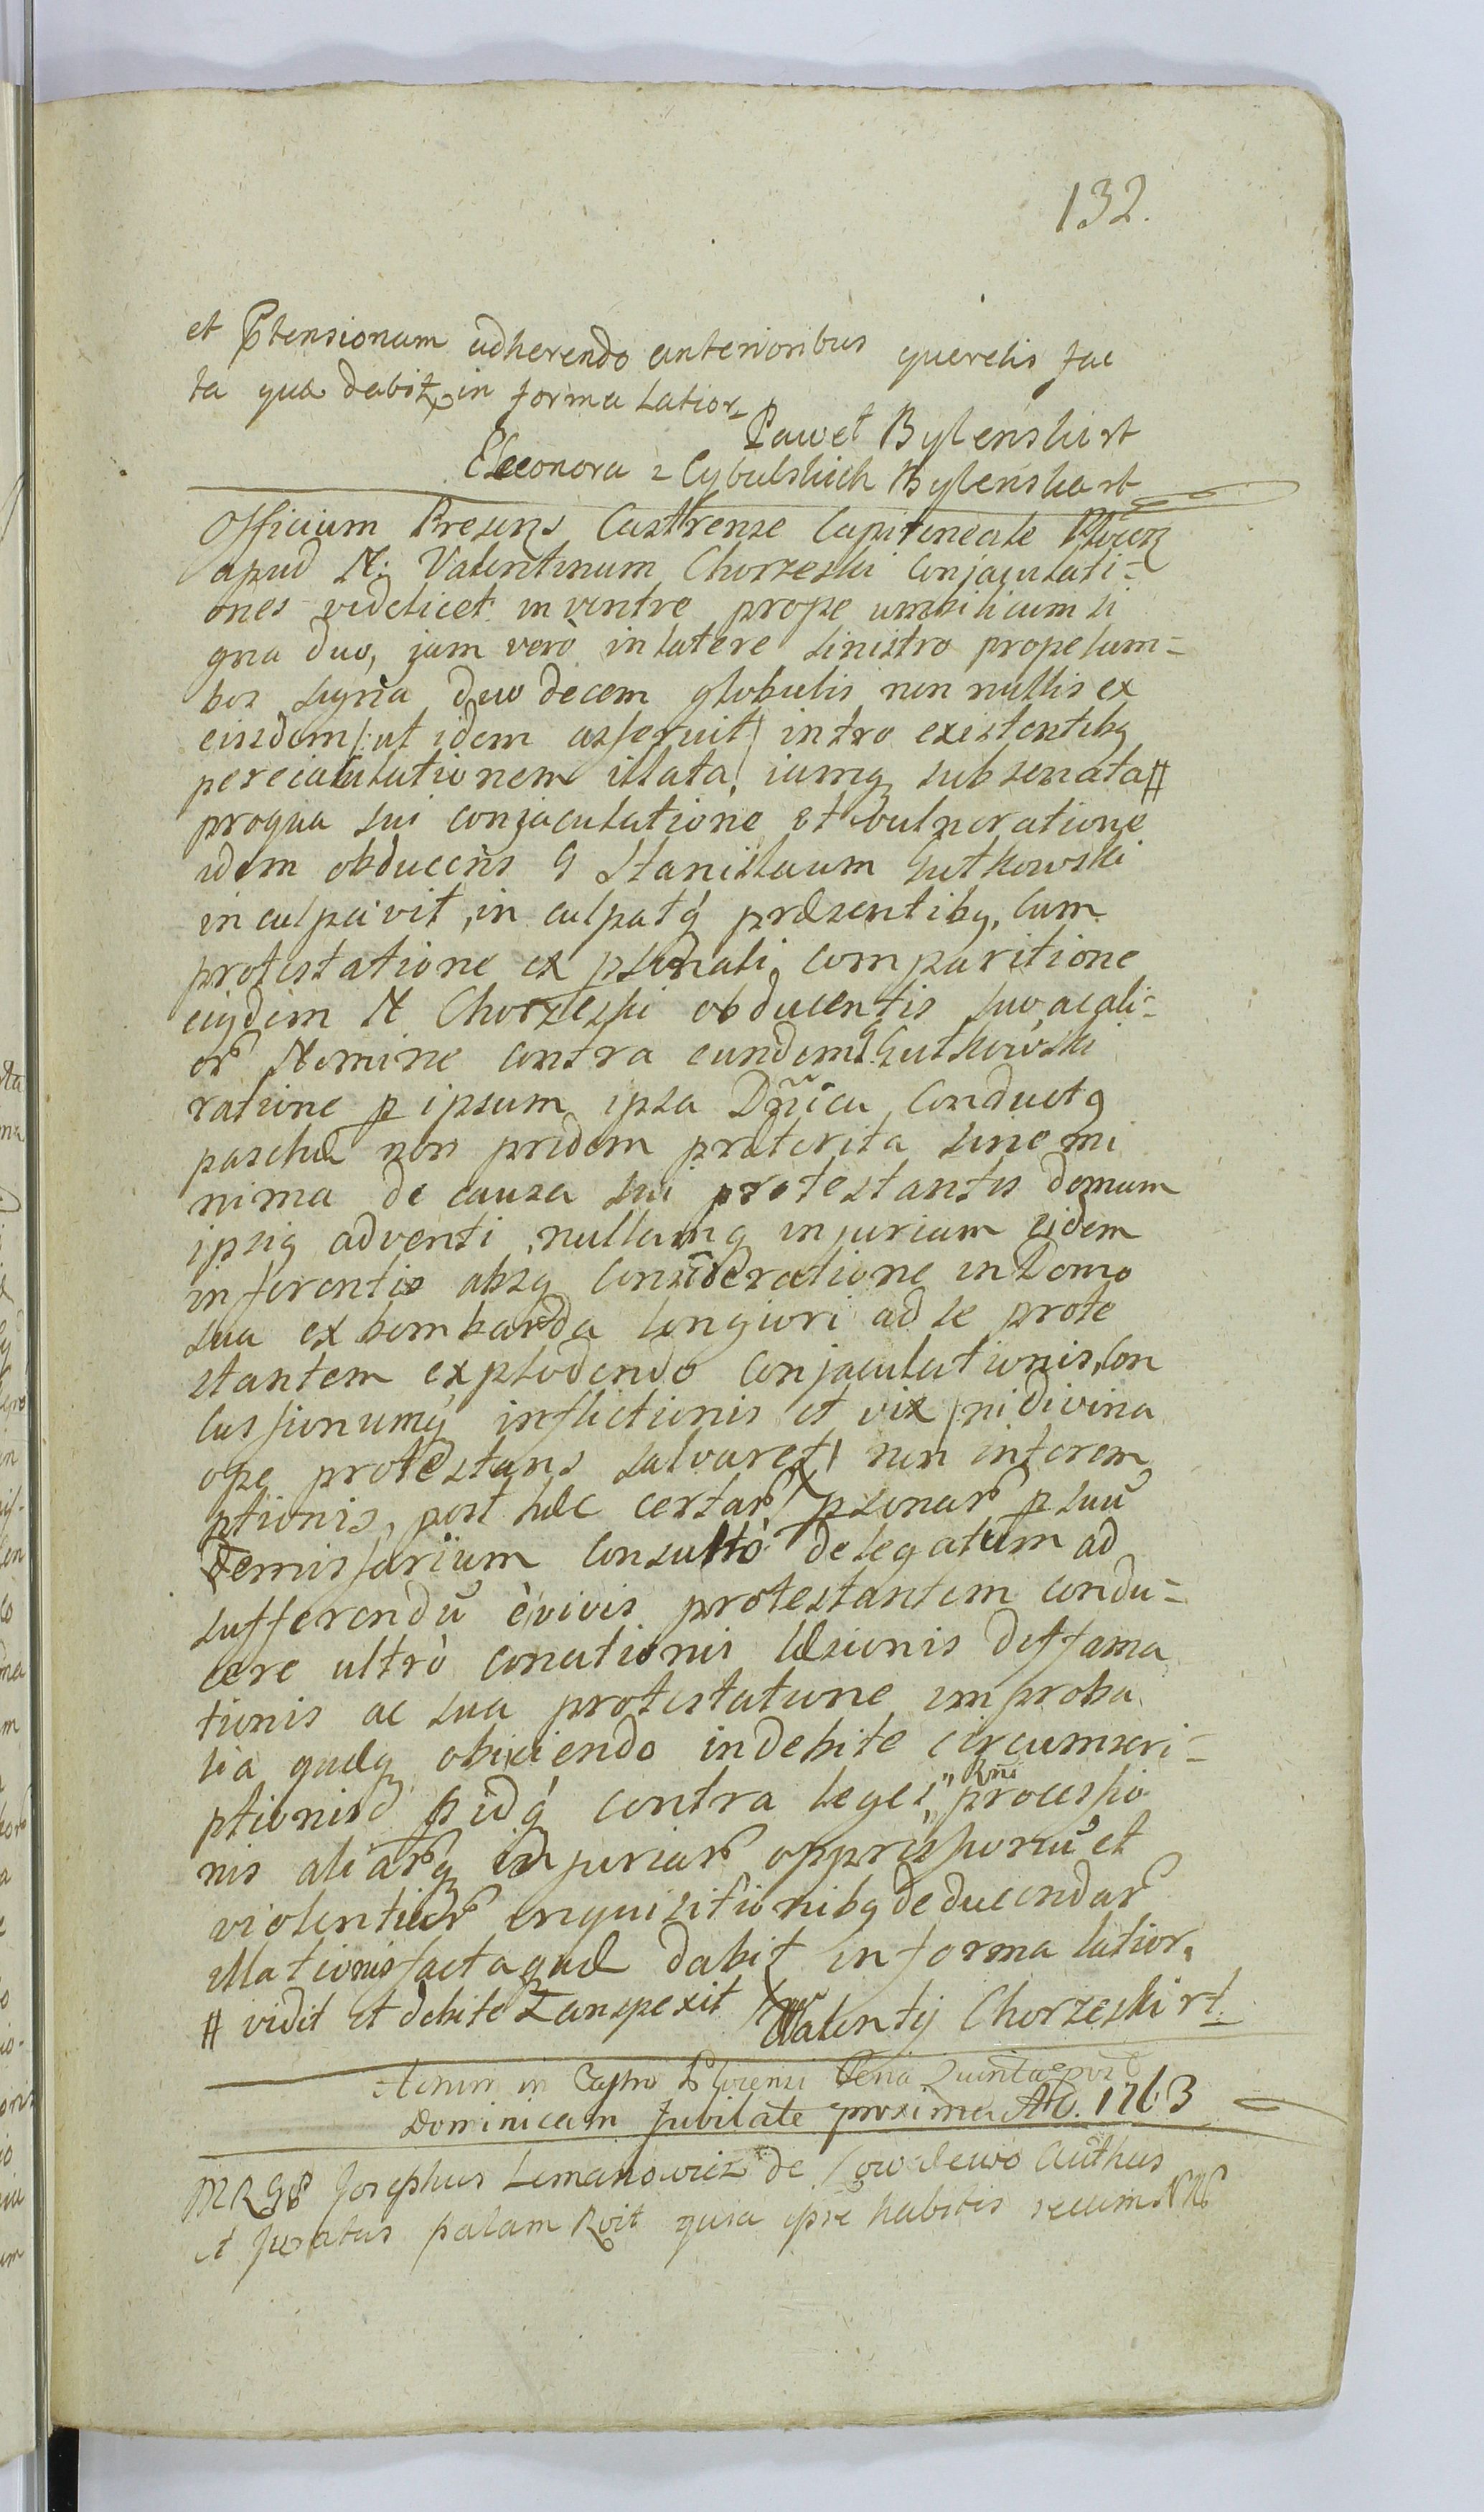 132.
et Ptensionum adherendo anterioribus querelis fac
ta quæ dabit in forma latior.
Paweł Bylenski rt
Eleonora z Cybulskich Bylenska rt
Officium Presens Castrense Capitaneale Plocen
apud N: Valentinum Chorzeski Conjaculati=
ones videlicet in ventre prope umbilicum si
gna duo, jam verò in latere sinistro prope lum=
bos signa duo decem globulis non nullis ex
eisdem /: ut idem asseruit / intro existentibq
per eiaculationem illata, iamq subsenata #
pro qua sui conjaculatione et vulneratione
idem obducens G Stanislaum Gutkowski
in culpavit, in culpatq præsentibq, Cum
protestatione ex psonali comparitione
eiqdem N Chorzeski obducentis suo, ac ali=
or Nomine contra eundem G. Gutkowski
ratione p ipsum ipsa Dnica Conductq
paschæ non pridem præterita sine mi
nima de causa sui protestantis domum
ipsiq adventi, nullamq injuriam eidem
inferentis absq Consideratione in Domo
sua ex bombarda longiori ad se prote
stantem explodendo Conjaculationis, Con
cussionumq inflictionis et vix / ni divina
ope protestans salvaret / non interem
ptionis, post hæc certar psonar p suũ
emissarium Consultò delegatum ad
sufferendũ è vivis protestantem condu=
cere ultrò conationis læsionis deffama
tionis ac sua protestatione improba
lia quæq obiiciendo indebite circumscri=
ptionis p idq contra leges, processio
nis aliarq injuriar oppressionũ et
violentiar inquisitionibq deducendar
illationis facta quæ dabit in forma latior.
# vidit et debite conspexit Walenty Chorzeski rt.
Actum in Castro Plocensi Feria Quinta post
Dominicam Jubilate proxima AD. 1763
Josephus Lemanowicz de authus
et Juratus palam Rvit quia ipse habitis secum